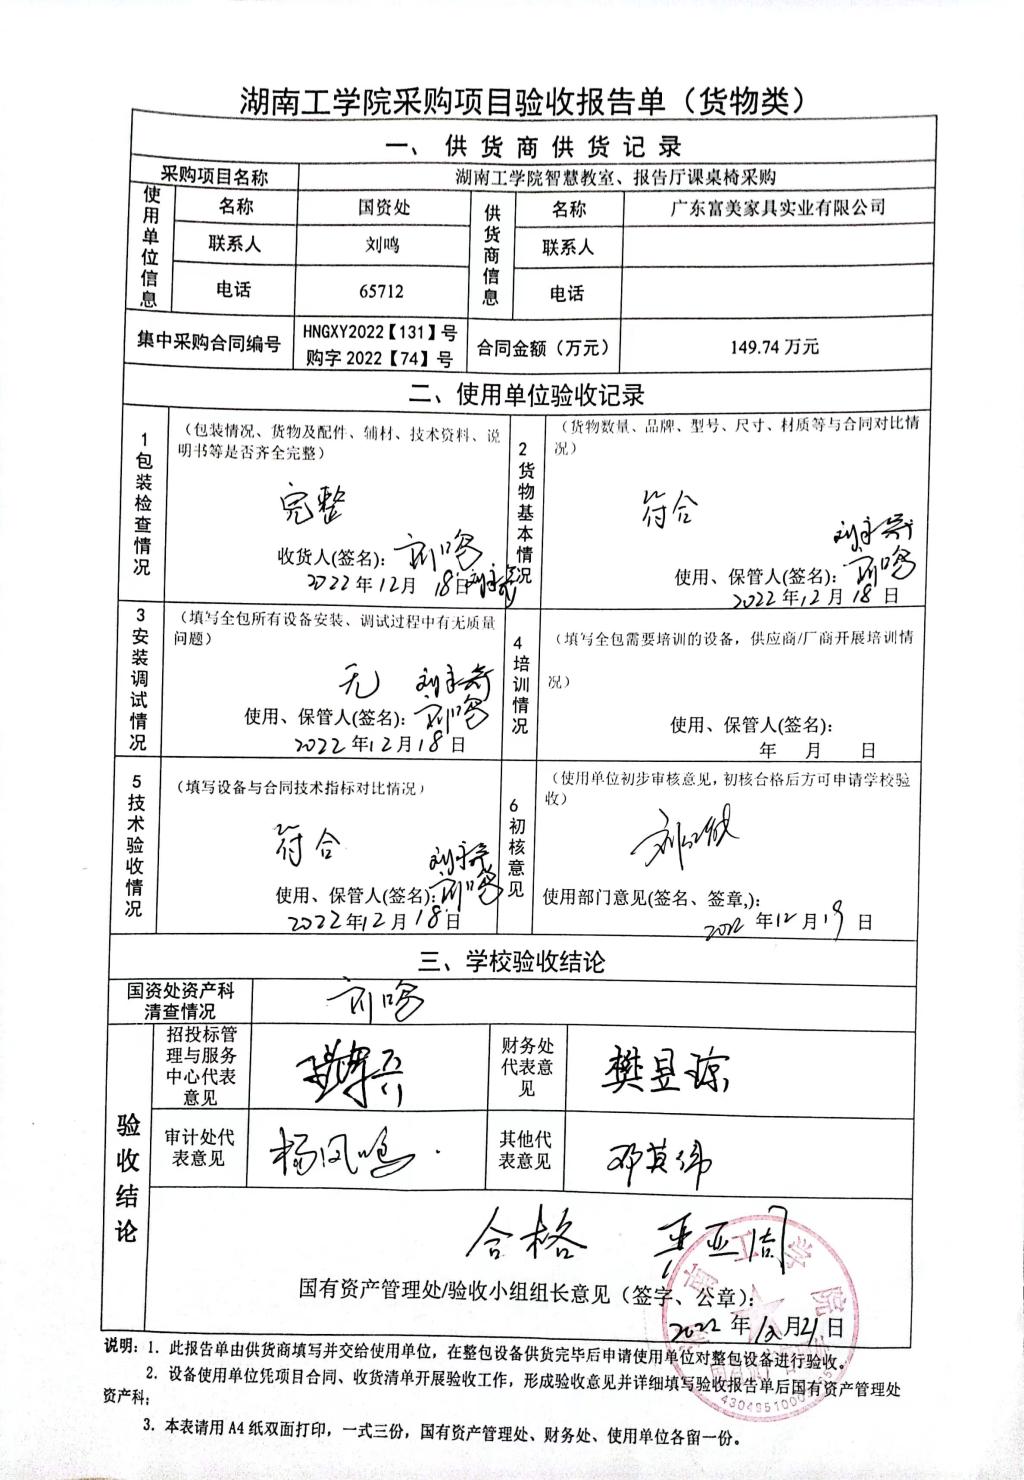 湖南工学院采购项目验收报告单（货物类）
一、供货商供货记录
采购项目名称 湖南工学院智慧教室、报告厅课桌椅采购
使用单位信息 名称 国资处 供货商信息 名称 广东富美家具实业有限公司
联系人 刘鸣 联系人
电话 65712 电话
集中采购合同编号 HNGXY2022【131】号
购字2022【74】号 合同金额（万元） 149.74万元
二、使用单位验收记录
1包装检查情况
（包装情况、货物及配件、辅材、技术资料、说
明书等是否齐全完整）
完整
收货人(签名): 刘鸣
2022年12月18日
2货物基本情况
（货物数量、品牌、型号、尺寸、材质等与合同对比情
况）
符合
使用、保管人(签名): 刘鸣
2022年12月18日
3安装调试情况
（填写全包所有设备安装、调试过程中有无质量
问题）
无
使用、保管人(签名): 刘鸣
2022年12月18日
4培训情况
（填写全包需要培训的设备，供应商/厂商开展培训情
况）
使用、保管人(签名):
年 月 日
5技术验收情况
（填写设备与合同技术指标对比情况）
符合
使用、保管人(签名): 刘鸣
2022年12月18日
6初核意见
（使用单位初步审核意见，初核合格后方可申请学校验
收）
使用部门意见(签名、签章,):
2022年12月19日
三、学校验收结论
国资处资产科
清查情况
刘鸣
验收结论
招投标管
理与服务
中心代表
意见
财务处
代表意
见
樊昱琼
审计处代
表意见
杨凤鸣
其他代
表意见
邓英伟
合格
国有资产管理处/验收小组组长意见（签字、公章）:
2022年12月21日
说明: 1. 此报告单由供货商填写并交给使用单位，在整包设备供货完毕后申请使用单位对整包设备进行验收。
2. 设备使用单位凭项目合同、收货清单开展验收工作，形成验收意见并详细填写验收报告单后国有资产管理处
资产科;
3. 本表请用A4纸双面打印，一式三份，国有资产管理处、财务处、使用单位各留一份。